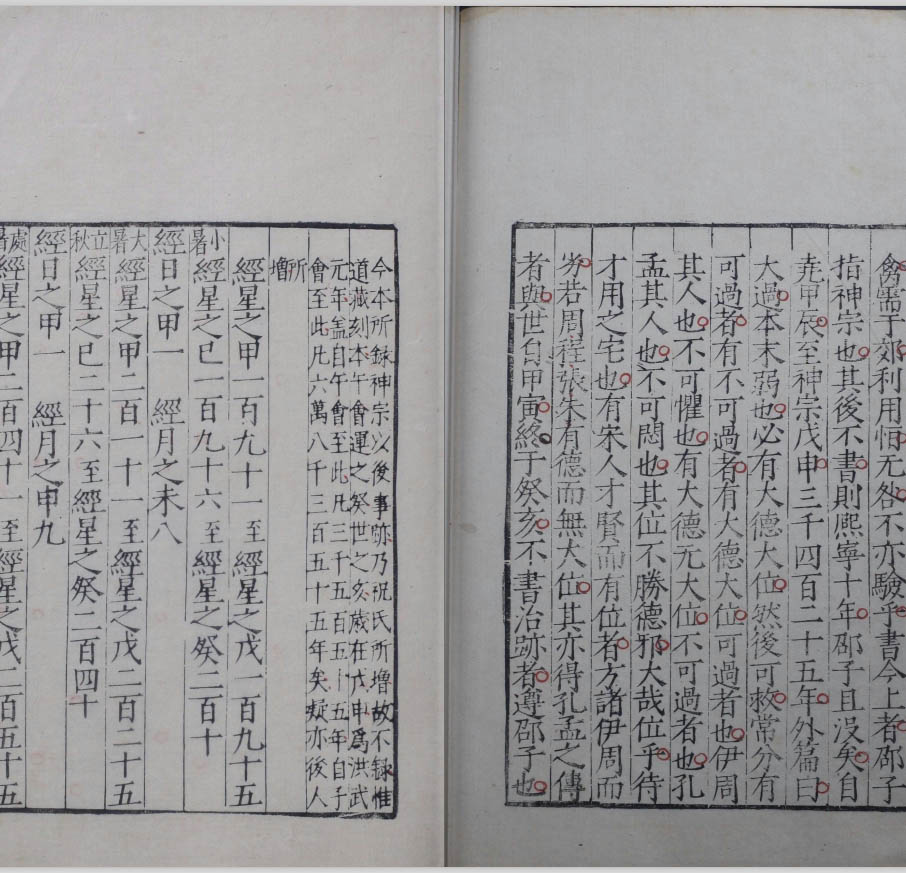 禽需于郊利用恒无咎不亦驗乎書今上者邵子
指神宗也其後不書則熙寧十年邵子且沒矣自
堯甲辰至神宗戊申三千四百二十五年外篇曰
大過本末弱也必有大德大位然後可救常分有
可過者有不可過者有大德大位可過者也伊周
其人也不可懼也有大德无大位不可過者也孔
孟其人也不可悶也其位不勝德邪大哉位乎待
才用之宅也有宋人才賢而有位者方諸伊周而
劣若周程張朱有德而無大位其亦得孔孟之傳
者與世自甲寅終于癸亥不書治跡者遵邵子也
今本所録神宗以後事跡乃祝氏所增故不録惟
道藏刻本午會運之癸世之亥歳在戊申爲洪武
元年盖自午會至此凡三千五百五十五年自子
會至此凡六萬八千三百五十五年矣疑亦後人
所增
經星之甲一百九十一至經星之戊一百九十五
小暑經星之已一百九十六至經星之癸二百十
經日之甲一 經月之未八
大暑經星之甲二百一十一至經星之戊二百二十五
立秋經星之已二十六至經星之癸二百四十
經日之甲一 經月之申九
處暑經星之甲二百四十一至經星之戊二百五十五